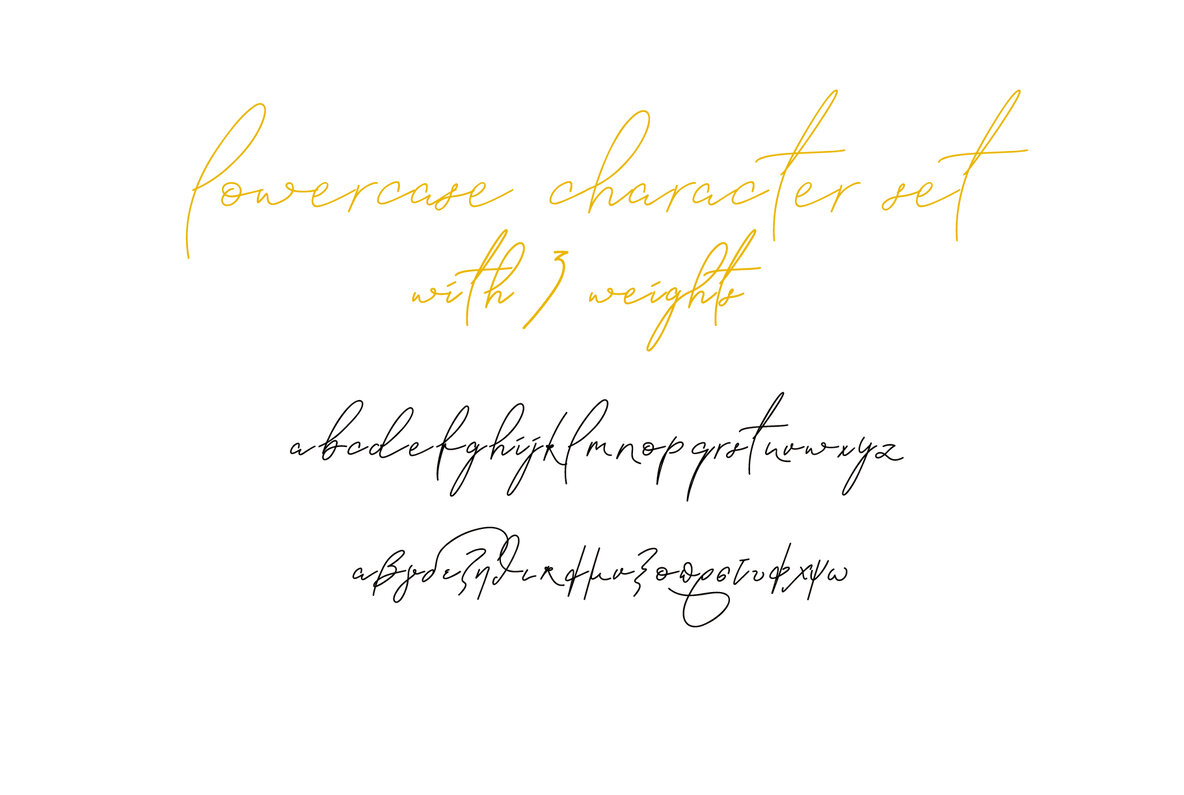 lowercase character set
with 3 weights
abcdefghijklmnopqrstuvwxyz
αβγδεζηθικλμνξοπρςτυφχψω